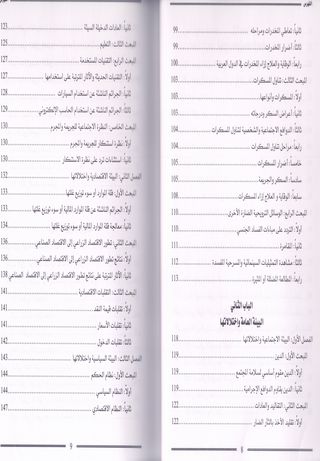 الفهرس
ثانياً: تعاطي المخدرات ومراحله 99
ثالثاً: أضرار المخدرات 99
رابعاً: الوقاية والعلاج إزاء المخدرات في الدول العربية 100
المبحث الثالث: تناول المسكرات 103
أولاً: المسكرات وأنواعها 103
ثانياً: أعراض السكر ودرجاته 103
ثالثاً: الدوافع الاجتماعية والشخصية لتناول المسكرات
رابعاً: مراحل تناول المسكرات
خامساً: أضرار المسكرات
سادساً: السكر والجريمة 105
سابعاً: الوقاية والعلاج إزاء المسكرات 108
المبحث الرابع: الوسائل الترويحية الضارة الأخرى 110
أولاً: التردد على مباءات الفساد الجنسي 110
ثانياً: المقامرة 111
ثالثاً: مشاهدة التمثيليات السينمائية والمسرحية المفسدة 112
رابعاً: المطالعة المضللة أو المثيرة 113
الباب الثاني
البيئة العامة واختلالاتها
الفصل الأول: البيئة الاجتماعية واختلالاتها 118
المبحث الأول: الدين 119
أولاً: الدين مقوم أساسي لسلامة المجتمع 119
ثانياً: الدين يقاوم الدوافع الإجرامية 119
المبحث الثاني: التقاليد والعادات 122
أولاً: تقليد الأخذ بالثأر الضار 122
8
ثانياً: العادات الدخيلة السيئة 123
المبحث الثالث: التعليم 125
المبحث الرابع: التقنيات المستخدمة 127
أولاً: التقنيات الحديثة والآثار المترتبة على استخدامها 127
ثانياً: الجرائم الناشئة عن استخدام السيارات 128
ثالثاً: الجرائم الناشئة عن استخدام الحاسب الإلكتروني 129
المبحث الخامس: النظرة الاجتماعية للجريمة والمجرم 130
أولاً: نظرة استنكار للجريمة والمجرم 130
ثانياً: استثناءات ترد على نظرة الاستنكار 130
الفصل الثاني: البيئة الاقتصادية واختلالاتها 132
المبحث الأول: قلة الموارد أو سوء توزيع غلتها
أولاً: الجرائم الناشئة عن قلة الموارد المالية أو سوء توزيع غلتها
ثانياً: معالجة قلة الموارد المالية أو سوء توزيع غلتها 134
المبحث الثاني: تطور الاقتصاد الزراعي إلى الاقتصاد الصناعي 136
أولاً: نتائج تطور الاقتصاد الزراعي إلى الاقتصاد الصناعي 136
ثانياً: الآثار المترتبة على نتائج تطور الاقتصاد الزراعي إلى الاقتصاد الصناعي 138
المبحث الثالث: التقلبات الاقتصادية 141
أولاً: تقلبات قيمة النقد 141
ثانياً: تقلبات الأسعار 141
ثالثاً: تقلبات الدخول 142
الفصل الثالث: البيئة السياسية واختلالاتها 143
المبحث الأول: نظام الحكم 144
أولاً: النظام السياسي 144
ثانياً: النظام الاقتصادي 147
9